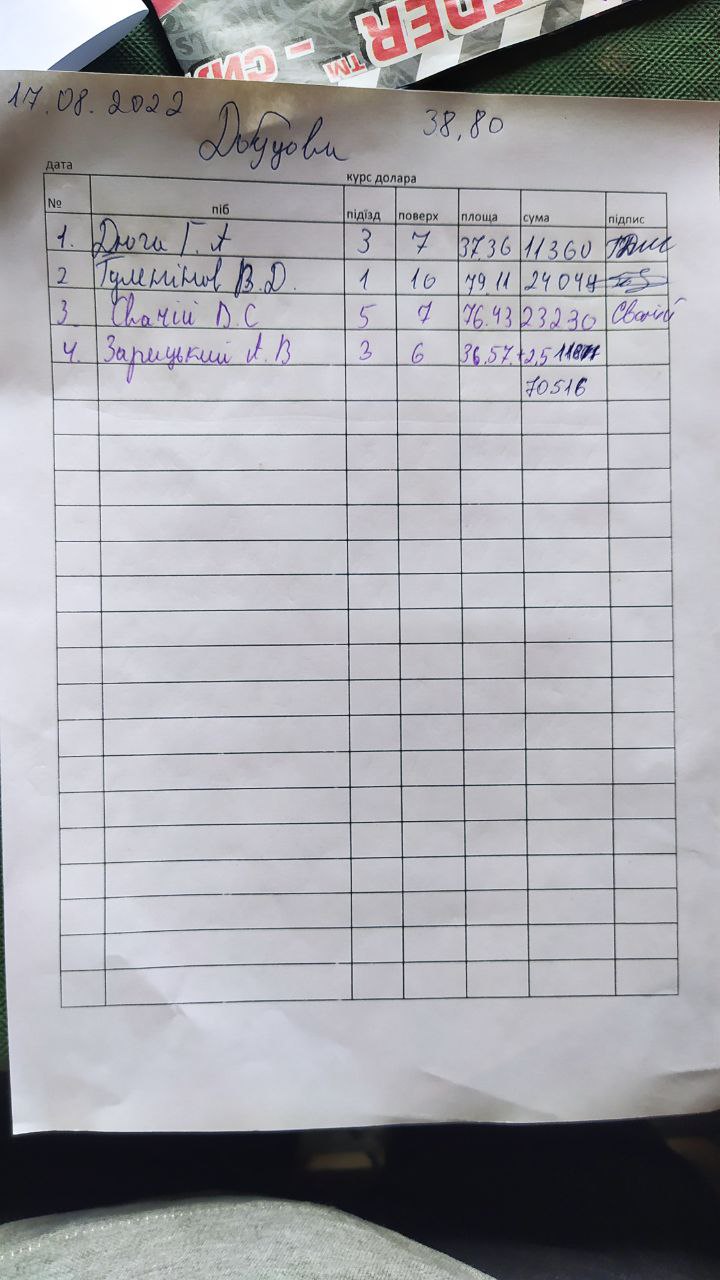 EDER™
- СИ
17.08.2022
38,80
дата
курс долара
№ піб підїзд поверх площа сума підпис
1. Дюги Г. А 3 7 37.36 11360
2 В.Д. 1 10 79 11 24044
3. Свачій В. С 5 7 76.43 23230 Свачій
4. Зарицький А. В 3 6 36.57.+2,5
70516